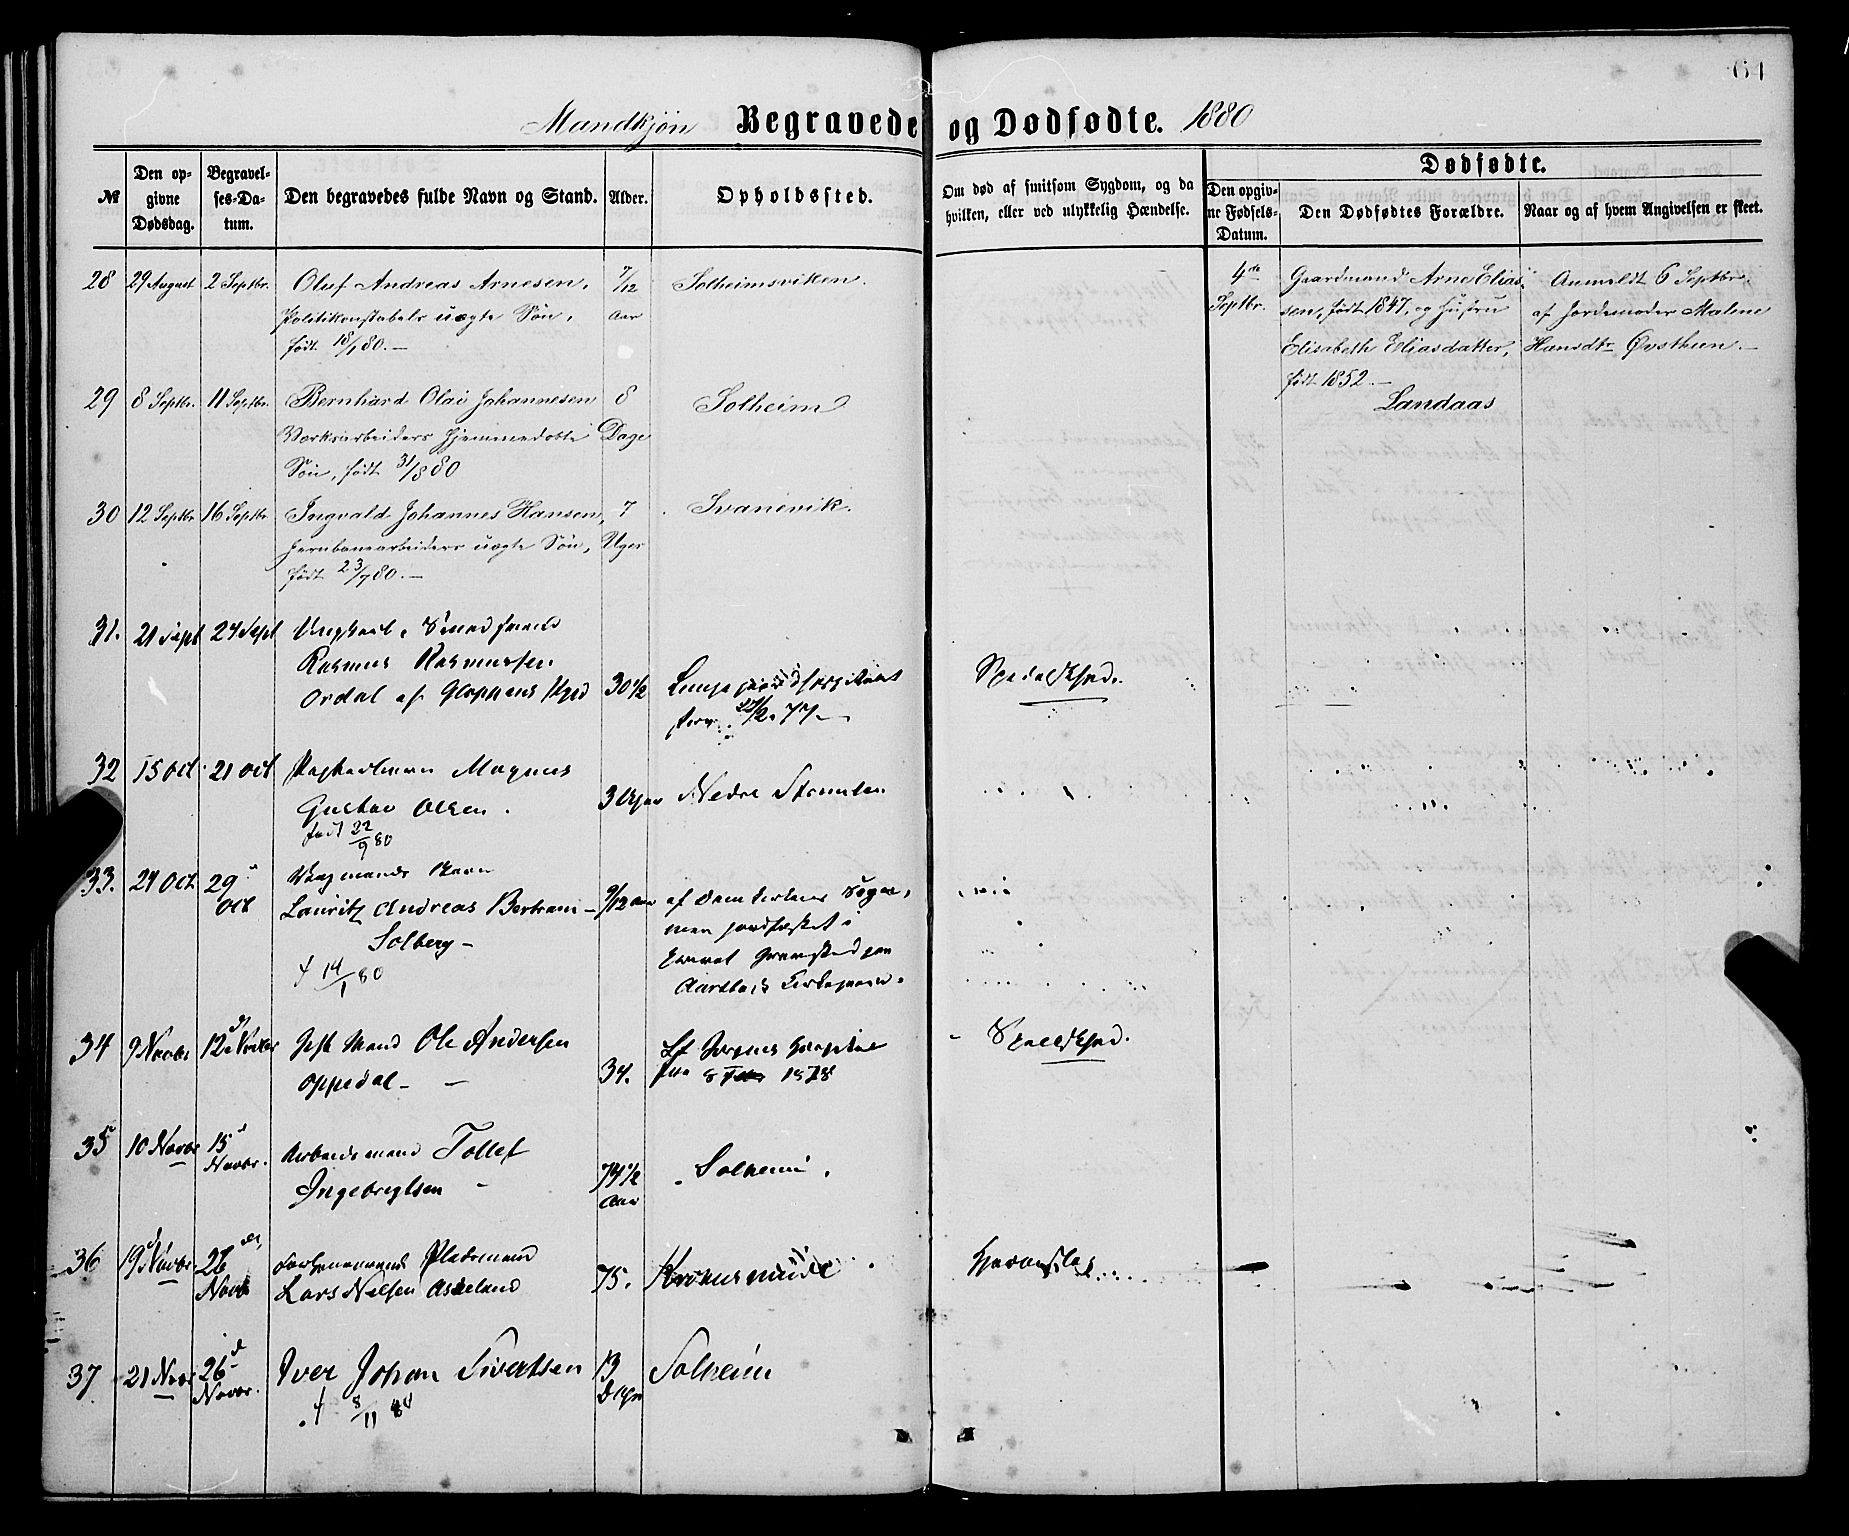 61
Mandkjøn Begravede og Dødfødte. 1880
№ Den opgivne Dødsdag. Begravelses-Datum. Den begravedes fulde Navn og Stand. Alder. Opholdssted. Om død af smitsom Sygdom, og da hvilken, eller ved ulykkelig Hændelse. Dødfødte. Den opgivne Fødsels-Datum. Den Dødfødtes Forældre. Naar og af hvem Angivelsen er skeet.
28 29 August 2 Septbr. Oluf Andreas Arnesen, 7/12 Solheimsviken.
Politikonstabels uægte Søn, Aar
født 18/1 80.—
4de Gaardmand Arne Elias- Anmeldt 6 Septbr.
Septbr. sen, født 1847, og Hustru af Jordemoder Malene
Elisabeth Eliasdatter, Hansdtr Øvsthun.—
født 1852.—
Landaas
29 8 Septbr. 11 Septbr. Bernhard Olai Johannesen 8 Solheim
Værksarbeiders hjemmedøbte Dage
Søn, født 31/8 80
30 12 Septbr 16 Septbr Ingvald Johannes Hansen, 7 Svanevik.
Jernbanearbeiders uægte Søn, Uger
født 23/7 80.—
31. 21 Sept 24 Sept Ungkarl,
Rasmus Rasmussen
Ordal af Gloppens 30 1/2 Lungegaardshospitalet Spedalskhed.
77—
32 15 Oct. 21 Oct Magnus
Gustav Olsen. 3 Uger Nedre Stemulen
født 22/9 80
33. 24 Oct 29 Oct
Lauritz Andreas Bertram— 9/12 Aar af Domkirkens Sogn,
Solberg— men jordfæstet i
f 14/1 80 privat Gravsted paa
Aarstads Kirkegaard.
34 9 Novbr 12 Novbr Gift Mand Ole Andersen St Jørgens Hospital Spedalskhed.
Oppedal— 34. fra 8 1878
35 10 Novbr 15 Novbr. Arbeidsmand Tollef
Ingebregtsen 74 1/2 Aar Solheim.
36 19 Novbr. 26 Novbr Pladsmand
Lars Nelsen Askeland 75. Kronsminde
37 21 Novbr 26 Novbr. Iver Johan Sivertsen 13 Solheim
f 8/11 80 Dage